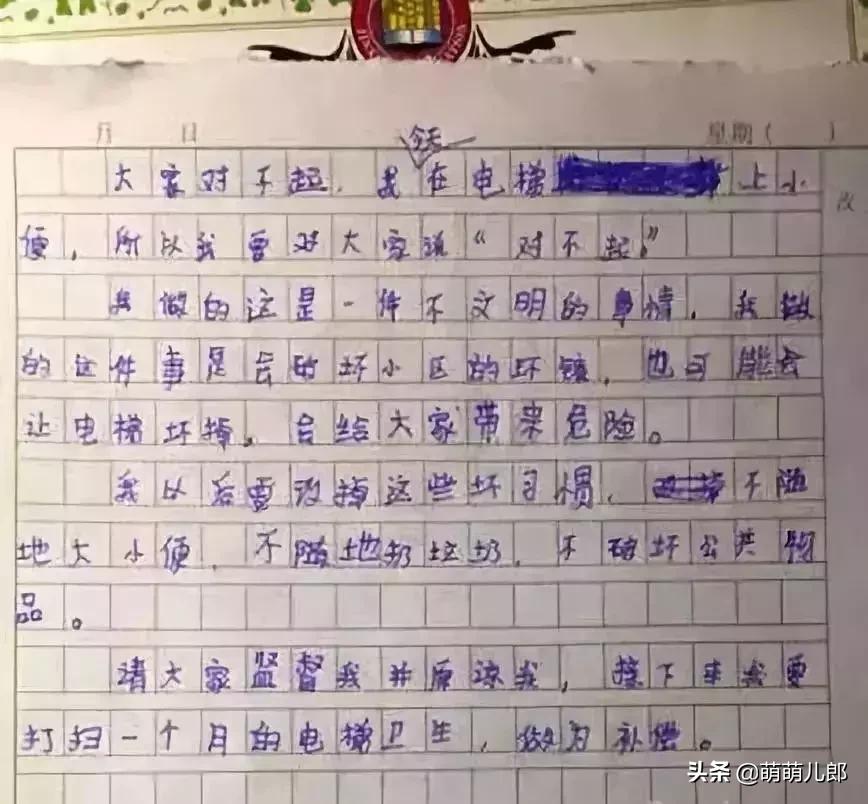 月 日 星期（ ）
今天
大家对不起，我在电梯上小
改
便，所以我要对大家说“对不起”
我做的这是一件不文明的事情，我做
的这件事是会破坏小区的环镜，也可能会
让电梯坏掉，会给大家带来危险。
我以后要改掉这些坏习惯，不随
地大小便，不随地扔垃圾，不破坏公共物
品。
请大家监督我并原谅我，接下来我要
打扫一个月的电梯卫生，做为补偿。
头条 @萌萌儿郎